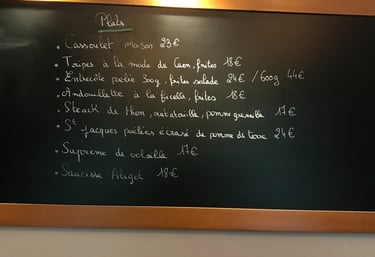 Plats
• Cassoulet maison 23€
• Tripes à la mode de Caen, frites 18€
• Entrecôte poêlée 300g, frites salade 24€ / 600g 44€
• Andouillette à la ficelle, frites 18€
• Steack de thon, ratatouille, pomme grenaille 17€
• St jacques poêlées écrasé de pomme de terre 24€
• Suprême de volaille 17€
• Saucisse Aligot 18€